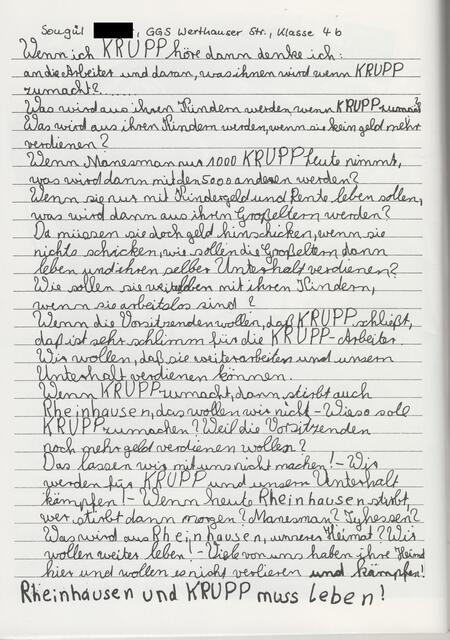 Songül , GGS Werthauser Str., Klasse 4b
Wenn ich KRUPP höre dann denke ich:
an die Arbeiter und daran, was ihnen wird wenn KRUPP
zumacht?......
Was wird aus ihren Kindern werden, wenn KRUPP zumacht?
Was wird aus ihren Kindern werden, wenn sie kein geld mehr
verdienen?
Wenn Manesman nur 1000 KRUPP leute nimmt,
was wird dann mit den 5000 anderen werden?
Wenn sie nur mit Kindergeld und Rente leben sollen,
was wird dann aus ihren Großeltern werden?
Da müssen sie doch geld hinschicken, wenn sie
nichts schicken, wie sollen die Großeltern dann
leben und ihren selber Unterhalt verdienen?
Wie sollen sie leben mit ihren Kindern,
wenn sie arbeitslos sind?
Wenn die Vorsitzenden wollen, daß KRUPP schließt,
daß ist sehr schlimm für die KRUPP-Arbeiter.
Wir wollen, daß sie weiterarbeiten und unsern
Unterhalt verdienen können.
Wenn KRUPP zumacht, dann stirbt auch
Rheinhausen, das wollen wir nicht - Wieso sole
KRUPP zumachen? Weil die Vorsitzenden
noch mehr geld verdienen wollen?
Das lassen wir mit uns nicht machen! - Wir
werden für KRUPP und unsern Unterhalt
kämpfen! - Wenn heute Rheinhausen stirbt
wer stirbt dann morgen? Manesman? Tyhessen?
Was wird aus Rheinhausen, unserer Heimat? Wir
wollen weiter leben! - Viele von uns haben ihre Heimd
hier und wollen es nicht verlieren und kämpfen!
Rheinhausen und KRUPP muss leben!